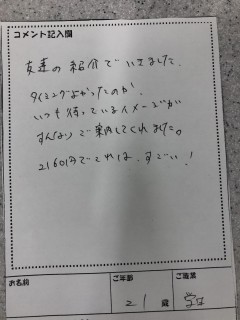 コメント記入欄
友達の紹介でいきました。
タイミングよかったのか、
いつも待っているイメージが
すんなりご案内してくれました。
2160円でこれは、すごい!
お名前
ご年齢
ご職業
21 歳
学生